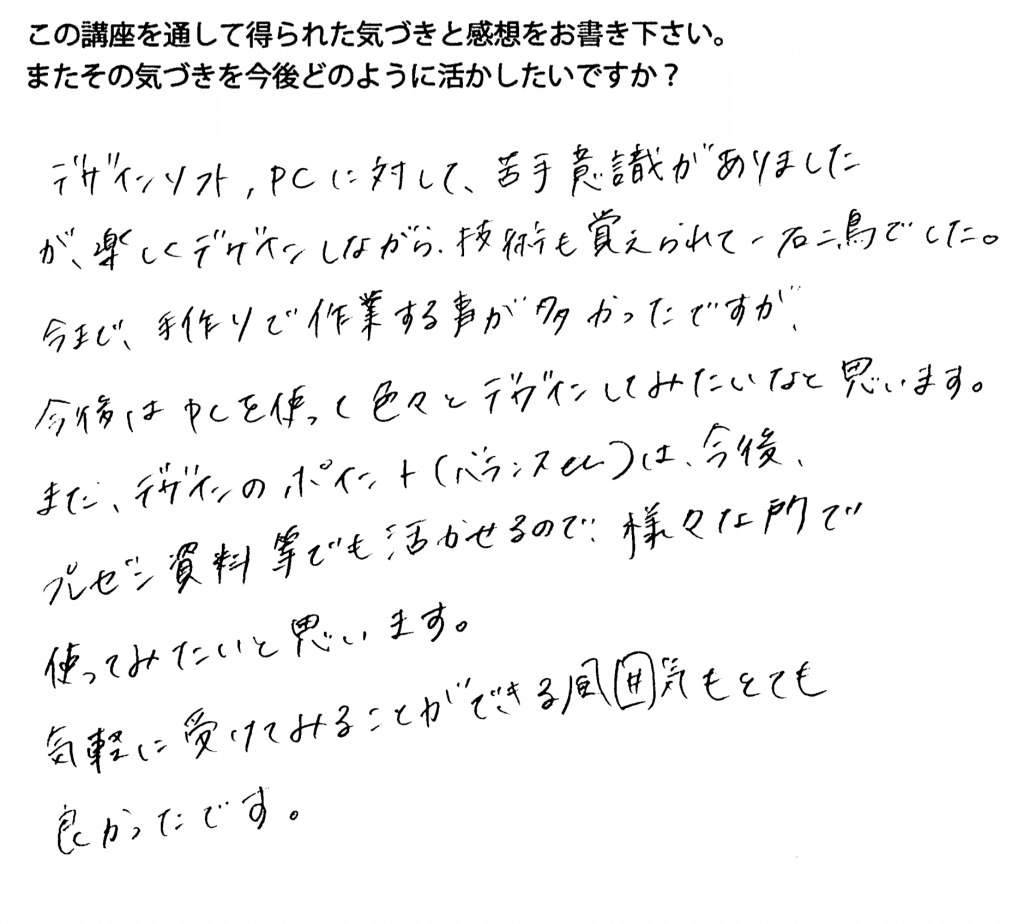 この講座を通して得られた気づきと感想をお書き下さい。
またその気づきを今後どのように活かしたいですか？
デザインソフト,PCに対して、苦手意識がありました
が、楽しくデザインしながら、技術も覚えられて一石二鳥でした。
今まで、手作りで作業する事が多かったですが、
今後はPCを使って色々とデザインしてみたいなと思います。
また、デザインのポイント(バランスetc)は、今後、
プレゼン資料等でも活かせるので、様々な所で
使ってみたいと思います。
気軽に受けてみることができる雰囲気もとても
良かったです。